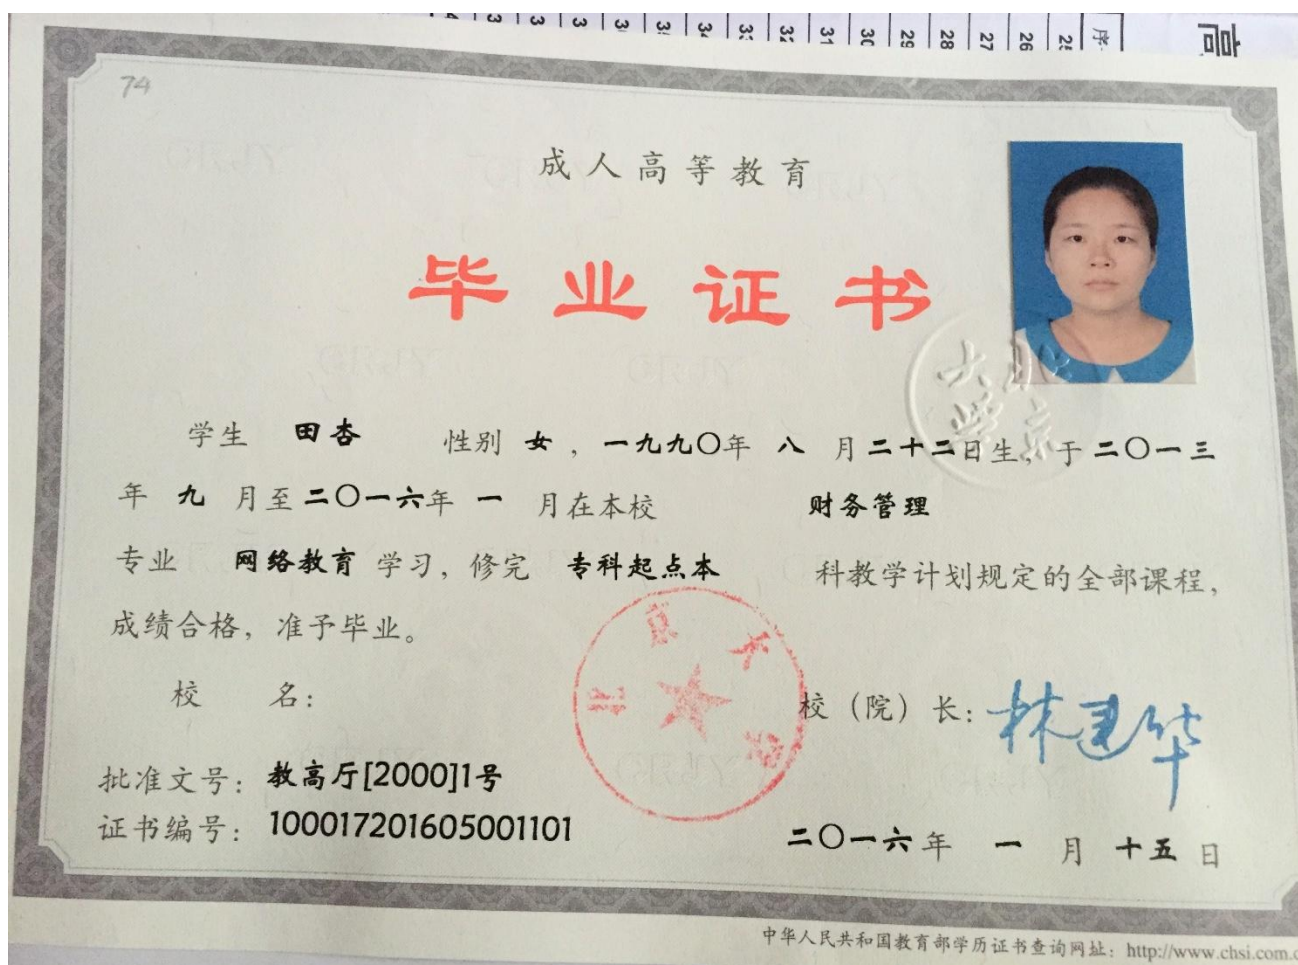 序
25
26
27
28
29
30
31
32
高
74
成人高等教育
毕业证书
学生 田杏 性别 女，一九九〇年 八 月二十二日生，于二〇一三
年 九 月至二〇一六年 一 月在本校 财务管理
专业 网络教育 学习，修完 专科起点本 科教学计划规定的全部课程，
成绩合格，准予毕业。
校 名：
北京大学
北京大学
校（院）长：林建华
批准文号：教高厅[2000]1号
证书编号：100017201605001101
二〇一六年 一 月 十五 日
中华人民共和国教育部学历证书查询网址：http://www.chsi.com.c